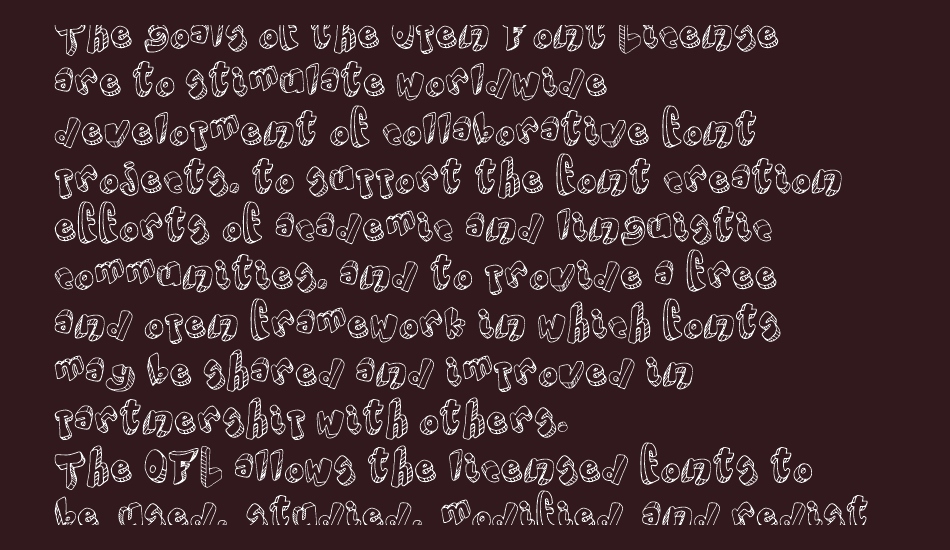 The goals of the Open Font License
are to stimulate worldwide
development of collaborative font
projects, to support the font creation
efforts of academic and linguistic
communities, and to provide a free
and open framework in which fonts
may be shared and improved in
partnership with others.
The OFL allows the licensed fonts to
be used, studied, modified and redist